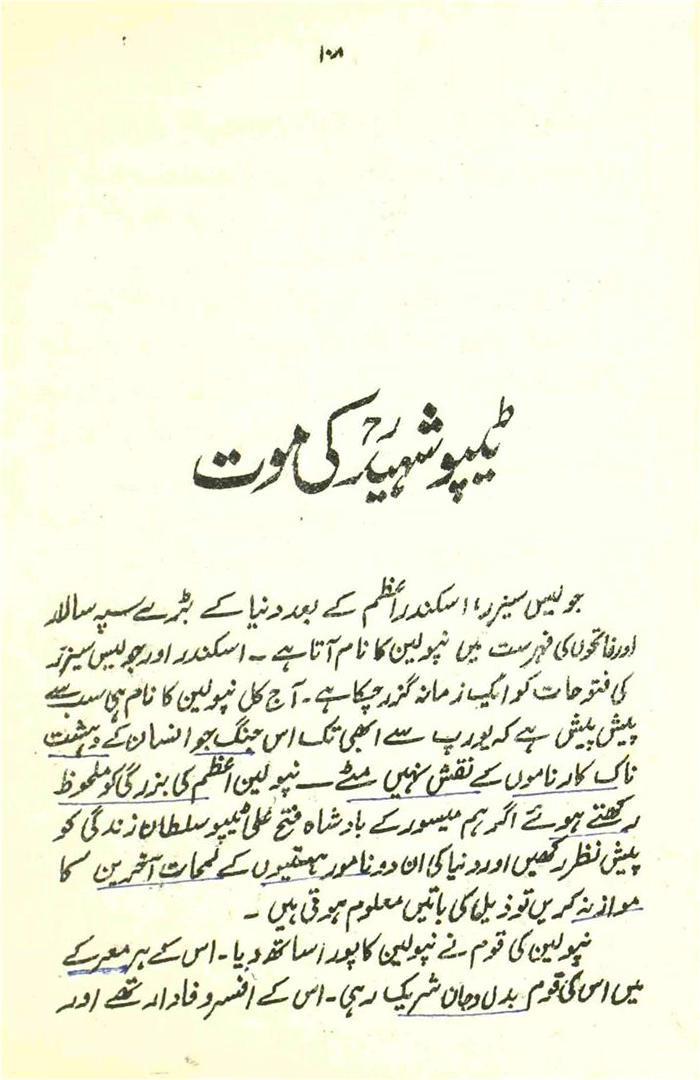 ۱۰۸
ٹیپو شہیدؒ کی موت
جولیس سیزر، اسکندر اعظم کے بعد دنیا کے بڑے سپہ سالار
اور فاتحوں کی فہرست میں نپولین کا نام آتا ہے۔ اسکندر اور جولیس سیزر
کی فتوحات کو ایک زمانہ گزر چکا ہے۔ آج کل نپولین کا نام ہی سب سے
پیش پیش ہے کہ یورپ سے ابھی تک اس جنگ جو انسان کے دہشت
ناک کارناموں کے نقش نہیں مٹے ۔ نپولین اعظم کی بزرگی کو ملحوظ
رکھتے ہوئے اگر ہم میسور کے بادشاہ فتح علی ٹیپو سلطان زندگی کو
پیش نظر رکھیں اور دنیا کی ان دو نامور ہستیوں کے لمحات آخرین کا
موازنہ کریں تو ذیل کی باتیں معلوم ہوتی ہیں ۔
نپولین کی قوم نے نپولین کا پورا ساتھ دیا۔ اس کے ہر معرکے
میں اس کی قوم بدل و جان شریک رہی۔ اس کے افسر وفادار تھے اور